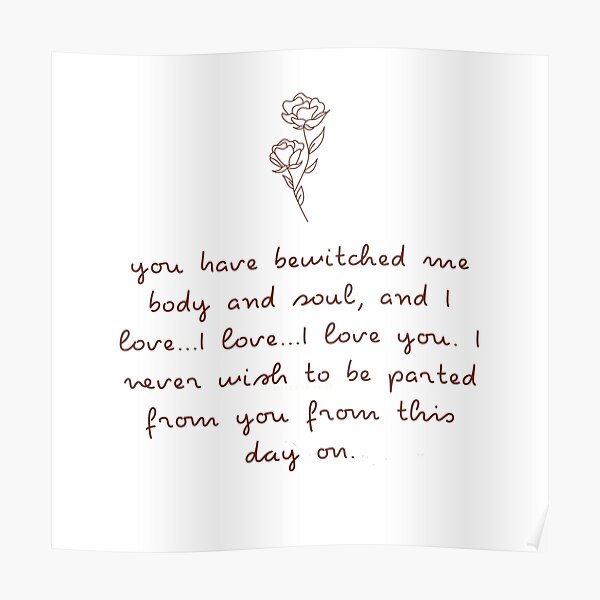 you have bewitched me
body and soul, and I
love...I love...I love you. I
never wish to be parted
from you from this
day on.